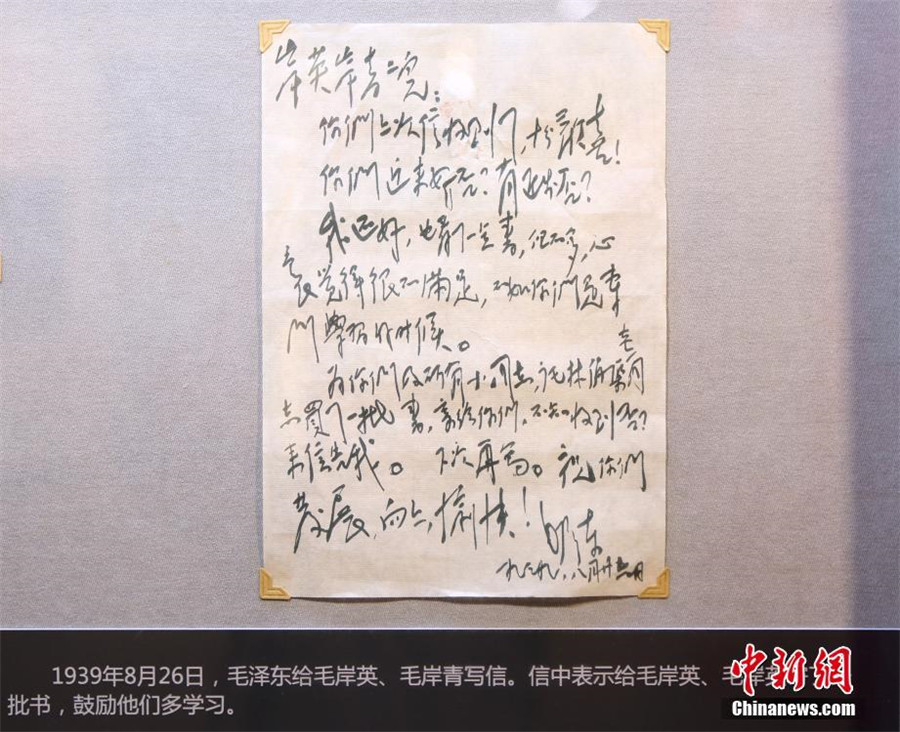 岸英岸青二兒：
你們上次信收到了，十分歡喜！
你們近来好否？有進步否？
我还好，也看了一点書，但不多，心
里觉得很不满足，不如你們是專
门學習的时候。
为你們及所有小同志，託林伯渠老同
志買了一批書，寄给你們，不知收到否？
来信告我。下次再写。祝你們
發展，向上，愉快！毛泽东
一九三九，八月廿六日
1939年8月26日，毛泽东给毛岸英、毛岸青写信。信中表示给毛岸英、毛岸
批书，鼓励他们多学习。
中新网
Chinanews.com